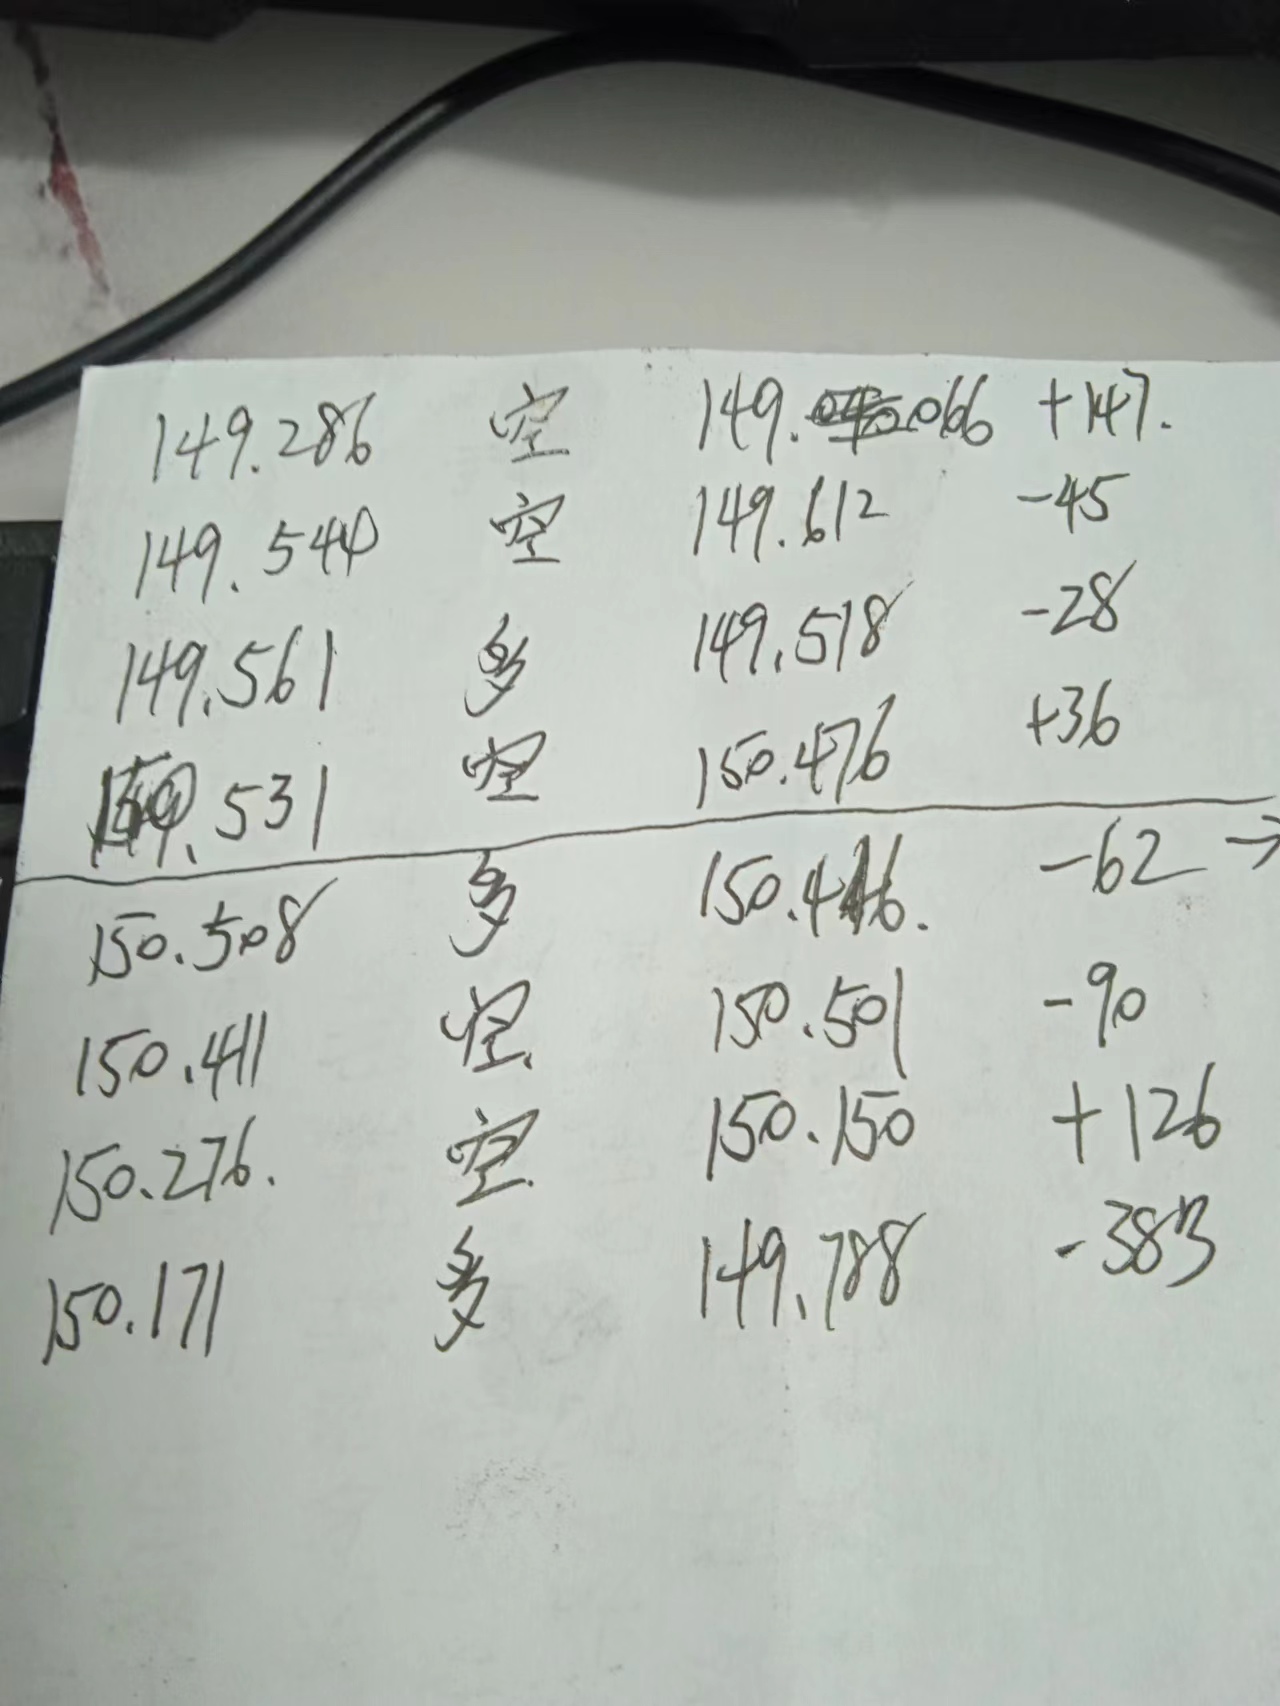 149.286 空 149.066 +147.
149.544 空 149.612 -45
149.561 多 149.518 -28
.531 空 150.476 +36
150.508 多 150.446. -62 →
150.411 空. 150.501 -90
150.276. 空. 150.150 +126
150.171 多 149.788 -383